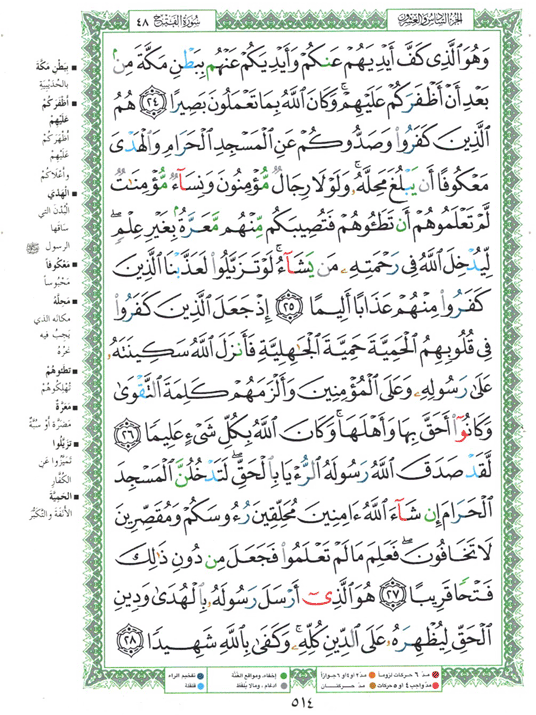 سُورَةُ الفَتْحِ ٤٨
الجزء السادس والعشرون
وَهُوَ ٱلَّذِى كَفَّ أَيْدِيَهُمْ عَنكُمْ وَأَيْدِيَكُمْ عَنْهُم بِبَطْنِ مَكَّةَ مِنۢ
بَعْدِ أَنْ أَظْفَرَكُمْ عَلَيْهِمْ ۚ وَكَانَ ٱللَّهُ بِمَا تَعْمَلُونَ بَصِيرًا ﴿٢٤﴾ هُمُ
ٱلَّذِينَ كَفَرُوا۟ وَصَدُّوكُمْ عَنِ ٱلْمَسْجِدِ ٱلْحَرَامِ وَٱلْهَدْىَ
مَعْكُوفًا أَن يَبْلُغَ مَحِلَّهُۥ ۚ وَلَوْلَا رِجَالٌ مُّؤْمِنُونَ وَنِسَآءٌ مُّؤْمِنَٰتٌ
لَّمْ تَعْلَمُوهُمْ أَن تَطَـُٔوهُمْ فَتُصِيبَكُم مِّنْهُم مَّعَرَّةٌۢ بِغَيْرِ عِلْمٍ ۖ
لِّيُدْخِلَ ٱللَّهُ فِى رَحْمَتِهِۦ مَن يَشَآءُ ۚ لَوْ تَزَيَّلُوا۟ لَعَذَّبْنَا ٱلَّذِينَ
كَفَرُوا۟ مِنْهُمْ عَذَابًا أَلِيمًا ﴿٢٥﴾ إِذْ جَعَلَ ٱلَّذِينَ كَفَرُوا۟
فِى قُلُوبِهِمُ ٱلْحَمِيَّةَ حَمِيَّةَ ٱلْجَٰهِلِيَّةِ فَأَنزَلَ ٱللَّهُ سَكِينَتَهُۥ
عَلَىٰ رَسُولِهِۦ وَعَلَى ٱلْمُؤْمِنِينَ وَأَلْزَمَهُمْ كَلِمَةَ ٱلتَّقْوَىٰ
وَكَانُوٓا۟ أَحَقَّ بِهَا وَأَهْلَهَا ۚ وَكَانَ ٱللَّهُ بِكُلِّ شَىْءٍ عَلِيمًا ﴿٢٦﴾
لَّقَدْ صَدَقَ ٱللَّهُ رَسُولَهُ ٱلرُّءْيَا بِٱلْحَقِّ ۖ لَتَدْخُلُنَّ ٱلْمَسْجِدَ
ٱلْحَرَامَ إِن شَآءَ ٱللَّهُ ءَامِنِينَ مُحَلِّقِينَ رُءُوسَكُمْ وَمُقَصِّرِينَ
لَا تَخَافُونَ ۖ فَعَلِمَ مَا لَمْ تَعْلَمُوا۟ فَجَعَلَ مِن دُونِ ذَٰلِكَ
فَتْحًا قَرِيبًا ﴿٢٧﴾ هُوَ ٱلَّذِىٓ أَرْسَلَ رَسُولَهُۥ بِٱلْهُدَىٰ وَدِينِ
ٱلْحَقِّ لِيُظْهِرَهُۥ عَلَى ٱلدِّينِ كُلِّهِۦ ۚ وَكَفَىٰ بِٱللَّهِ شَهِيدًا ﴿٢٨﴾
■ بِبَطْنِ مَكَّةَ
بالحُدَيْبِيَةِ
■ أَظْفَرَكُمْ
عَلَيْهِمْ
أَظْهَرَكُمْ
عَلَيْهِمْ
وأَعْلاكُمْ
■ الْهَدْيَ
الْبُدْنَ التي
سَاقَهَا
الرسول ﷺ
■ مَعْكُوفاً
مَحْبُوساً
■ مَحِلَّهُ
مكانَه الذي
يَجِبُ فيه
نَحْرُهُ
■ تَطَئُوهُمْ
تُهْلِكُوهُمْ
■ مَعَرَّةٌ
مَضَرَّةٌ أَوْ سُبَّةٌ
■ تَزَيَّلُوا
تَمَيَّزُوا عَنِ
الكُفَّارِ
■ الْحَمِيَّةَ
الأَنَفَةَ والتَّكَبُّرَ
مدّ ٦ حركات لزوماً مدّ ٢ أو ٤ أو ٦ جوازاً
مدّ واجب ٤ أو ٥ حركات مدّ حركتان
إخفاء، ومواقع الغنّة
ادغام ، ومالا يُلفظ
تفخيم الراء
قلقلة
٥١٤